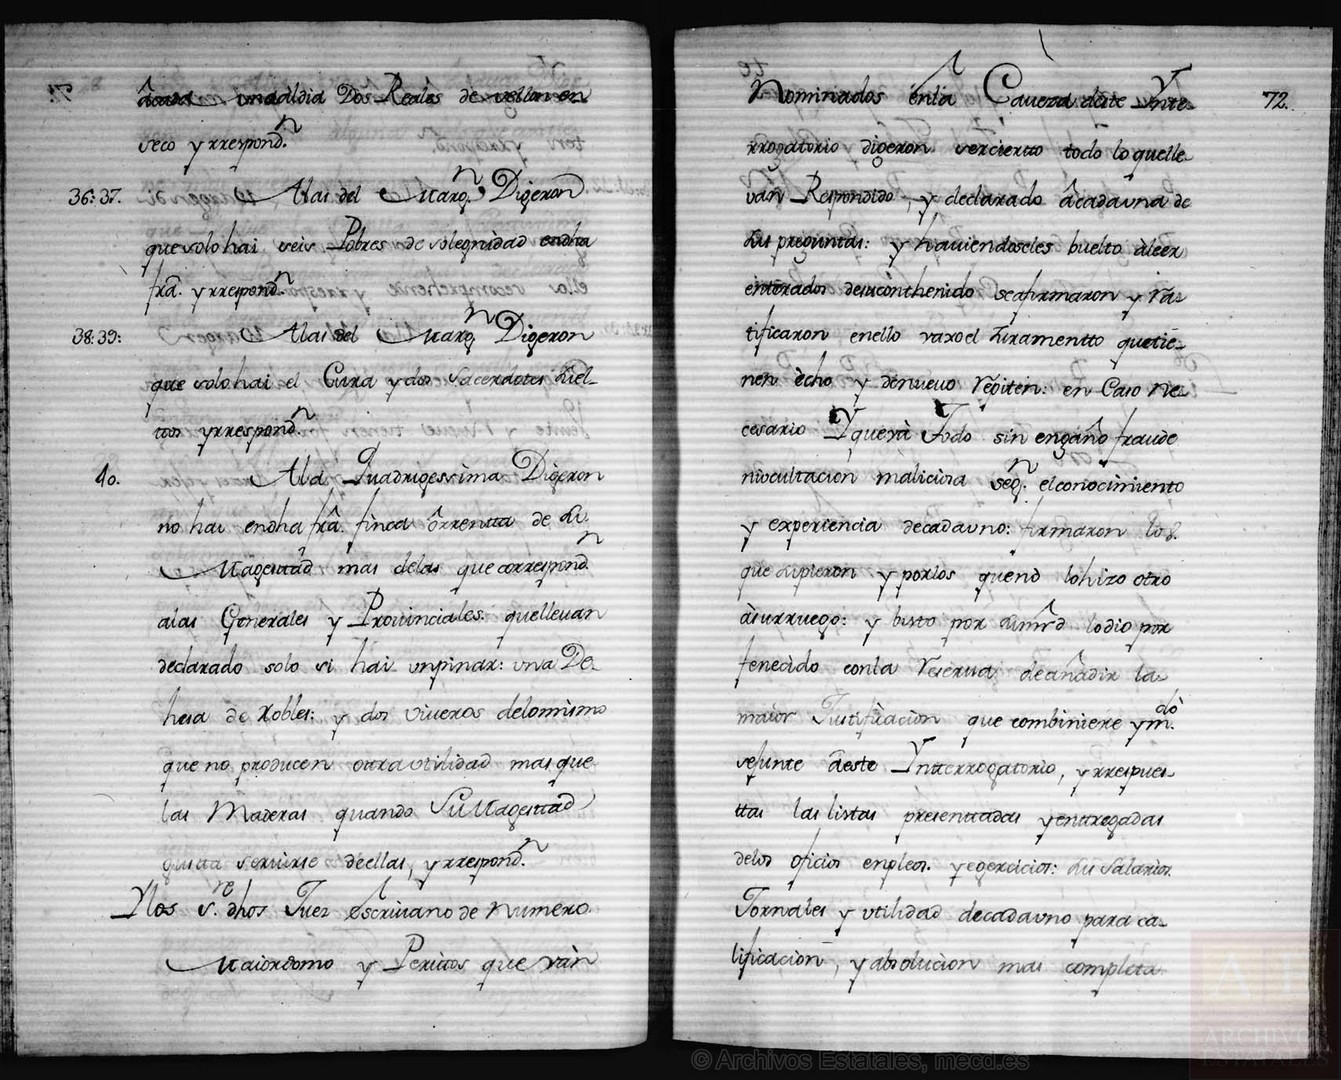 âcada unaâldia Dos Reales de vellon en
seco y rrespond.n
36: 37. Alas del Marg.n Digeron
que solo hai seis Pobres de solegnidad endha
frâ. y rrespond.n
38: 39: Alas del Marg.n Digeron
que solo hai el Cura y dos Sacerdotes
y rrespond.n
40. Ala Quadrigessima Digeron
no hai endha frâ. finca ôrrentta de Su
Magesttad mas delas que correspond.n
alas Generales y Prouinciales: quelleuan
declarado solo si hai unpinar: una De-
hesa de Robles: y dos viueros delomismo
que no producen otra utilidad mas que
las Maderas quando Su Magesttad
gusta servirse deellas, y rrespond.n
Nos s.re dhos Juez Escriuano de Numero
Maiordomo y Perittos que ván
72.
Nominados enlâ Caueza deste Ynte-
rrogatorio digeron sercierto todo lo quelle-
van Respondido, y declarado âcadauna de
sus preguntas: y hauiendoseles buelto àleer
entèrados desuconthenido seafirmaron y rà-
tificaron enello vaxoel Juramentto quetiê-
nen ècho y denueuo rèpiten: en Caso ne-
cesario Yquevà Todo sin engaño fraude
niocultacion maliciosa seg.n elconocimiento
y experiencia decadauno: firmaron los
que supieron y porlos quenò lohizo otro
àsurruego: y visto por sûmrd lodio por
fenecido conla rèserua deañâdir la
maior Justificàciòn que combiniere y m.dò
sejunte âeste Ynterrogatorio, y rrespues-
ttas las listas presenttadas y enttregadas
delos oficios enpleos. y egercicios: sus Salarios
Jornales y utilidad decadauno para ca-
lificaciòn, y absoluciòn mas completa
© Archivos Estatales, mecd.es
ARCHIVOS
ESTATALES